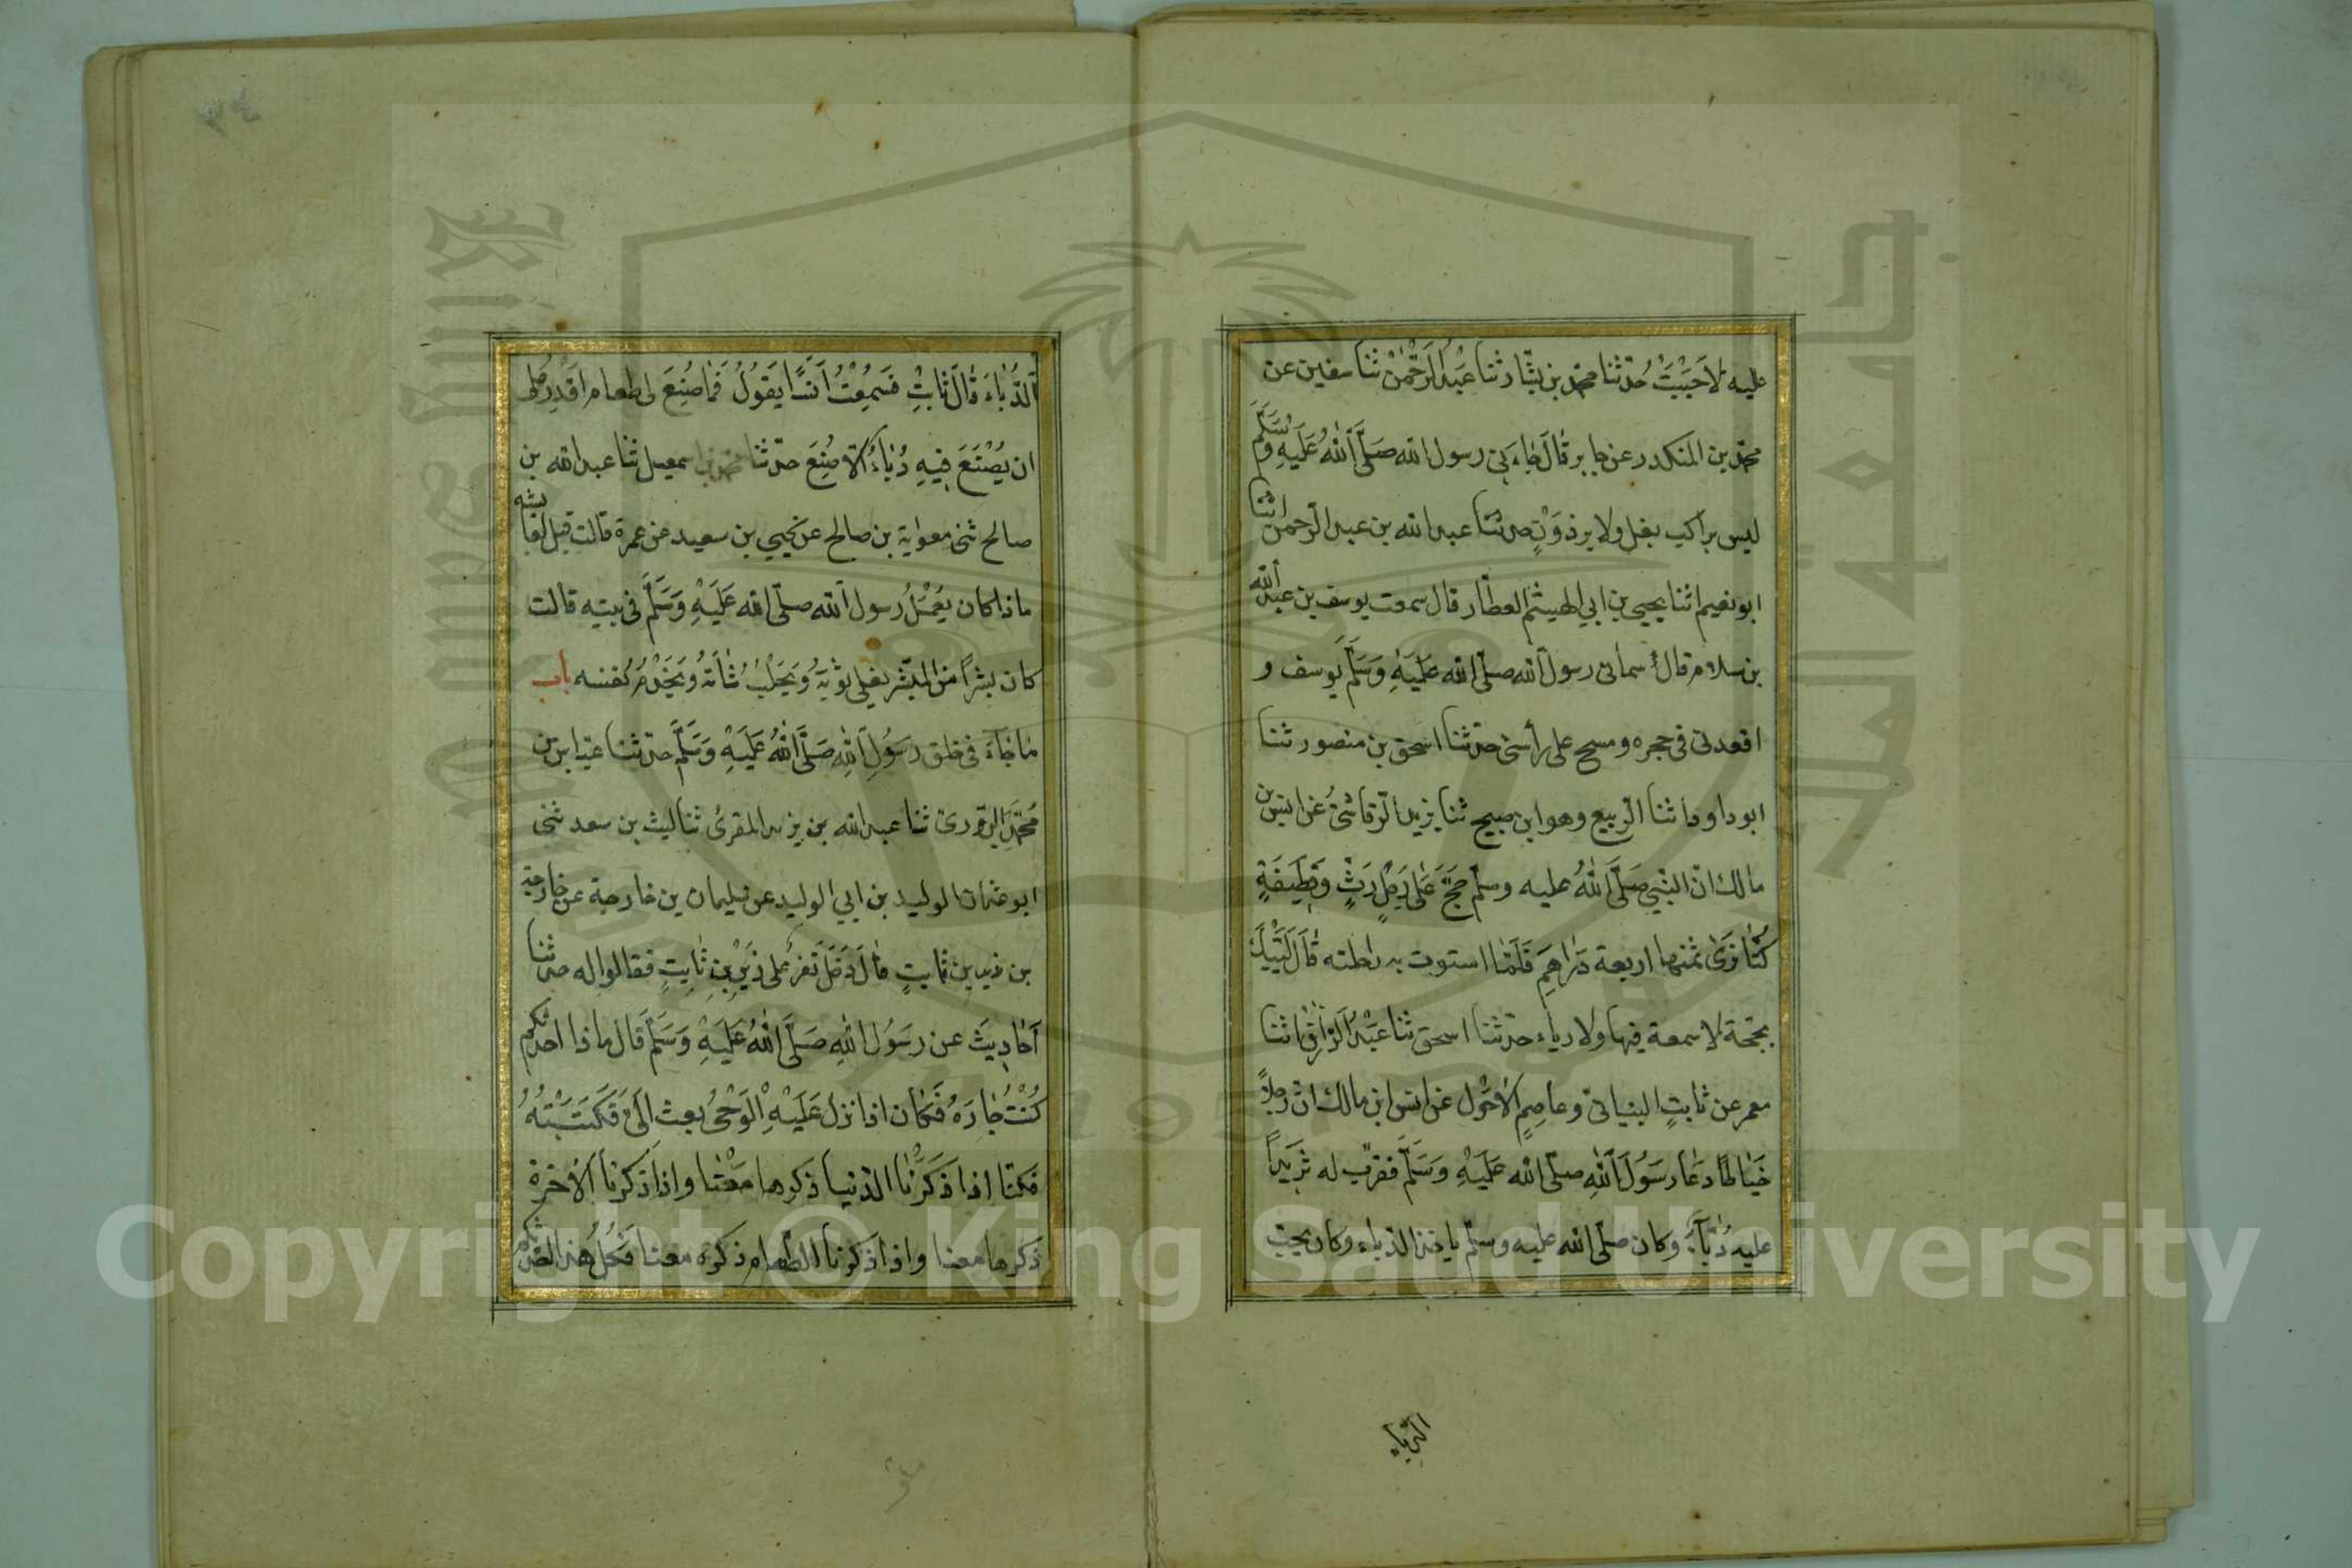 عليه لاَجَبْتُ حدّثنا محمّد بن بشّار ثنا عَبْدُ الرَّحْمٰنْ ثنا سفين عن
محمّد بن المنكدر عن جابر قَالَ جَاءَنِي رسول الله صَلَّى اَللّٰهُ عَلَيْهِ وَسَلَّمَ
ليس براكب بغل ولا برذَوْنٍ حدثنا عبد الله بن عبد الرّحمن اثنا
ابو نعيم اثنا يحيى بن ابي الهيثم العطّار قال سمعت يوسف بن عبد الله
بن سلام قال سماني رسول الله صلّى الله عَلَيْهِ وَسَلَّمَ يوسف و
اقعدني في حجره ومسح على رأسى حدّثنا اسحق بن منصور ثنا
ابو داود اثنا الرّبيع وهو ابن صبيح ثنا يزيد الرّقاشىُّ عن انس بن
مالك انّ النّبي صَلَّى اللّٰهُ عليه وسلّم حَجَّ عَلٰى رَحْلٍ رَثٍّ وَقَطِيفَةٍ
كُنّٰا نَرٰى ثمنها اربعة دَرَاهِمَ فَلَمّٰا استوت به راحلته قَالَ لَبَّيْكَ
بحجّة لا سمعة فيها ولا رياء حدّثنا اسحق ثنا عَبْدُ الرَّزّٰاقِ اثنا
معمر عن ثابتٍ البنانىّ وعاصِمٍ الاَحْوَل عن انس ابن مالك انّ رجلاً
خَيّٰاطًا دَعَا رَسُولَ اَللّٰهِ صلّى الله عَلَيْهِ وَسَلَّمَ فقرّب له ثَرِيداً
عليه دُبَّاءٌ وكان صلّى الله عليه وسلّم ياخذ الدّباء وكان يحبّ
الدّباء
اَلدُّبّٰاءَ قَالَ ثَابِتٌ فَسَمِعْتُ اَنَسًا يَقُولُ فَمَا صُنِعَ لى طعام اَقْدِرُ على
ان يُصْنَعَ فِيهِ دُبّٰاءٌ اِلاّ صُنِعَ حدّثنا محمد بن اسمعيل ثنا عبد الله بن
صالح ثنى معوٰية بن صالح عن يحيي بن سعيد عن عمرة قالت قيل لعايشه
ماذا كان يَعْمَلُ رسول الله صلّى الله عَلَيْهِ وَسَلَّمَ فى بيته قالت
كان بشراً من البشر يفلى ثوبَهُ وَيَحْلُبُ شَاتَهُ وَيَخْدُمُ نفسه باب
مَا جَاءَ فى خلق رَسُولِ اَللّٰهِ صَلَّى اَللّٰهُ عَلَيْهِ وَسَلَّمَ حدّثنا عبّاس بن
مُحَمَّد الدّورى ثنا عبد الله بن يزيد المقرئ ثنا ليث بن سعد ثنى
ابو عثمان الوليد بن ابي الوليد عن سليمان بن خارجة عن خارجة
بن زيد بن ثابتٍ قَالَ دَخَلَ نَفَرٌ على زَيْدِ بْنِ ثَابِتٍ فقالوا له حدثنا
اَحَادِيثَ عن رَسُول اللّٰهِ صَلَّى اللّٰهُ عَلَيْهِ وَسَلَّمَ قَالَ ماذا احدثكم
كُنْتُ جَارَهُ فَكَان اذا نزل عَلَيْهِ اْلوَحْىُ بعث الَىَّ فَكَتَبْتُهُ
فكنّا اذا ذَكَرْنَا الدّنيا ذكرها مَعَنَا واذا ذكرنا الاٰخرة
ذكرها معنا واذا ذكرنا الطّعام ذكره معنا فَكُلُّ هذا احدثكم
Copyright © King Saud University
1957